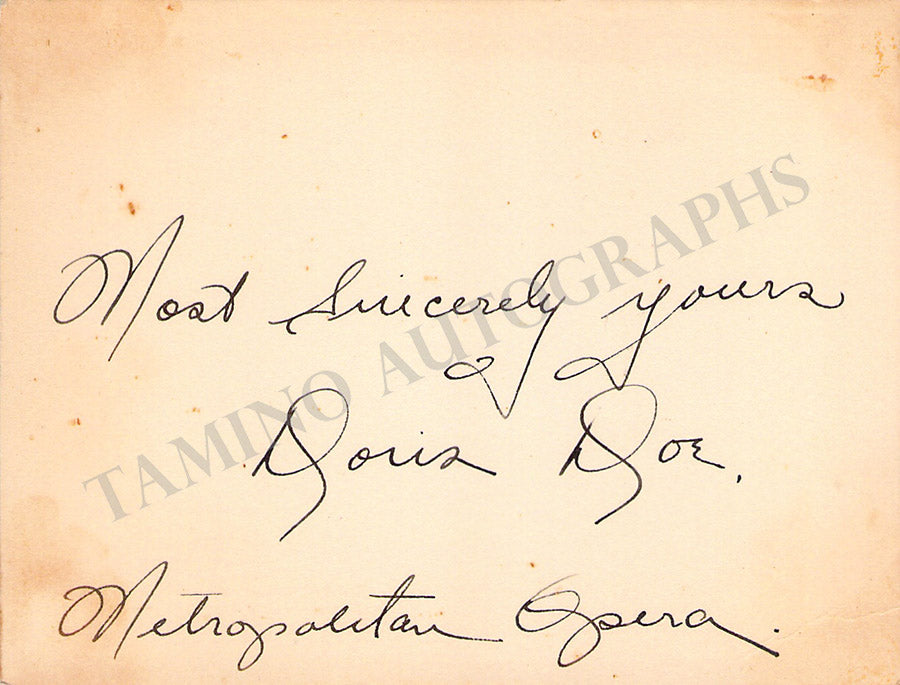 Most Sincerely yours
Doris Doe.
Metropolitan Opera.
TAMINO AUTOGRAPHS